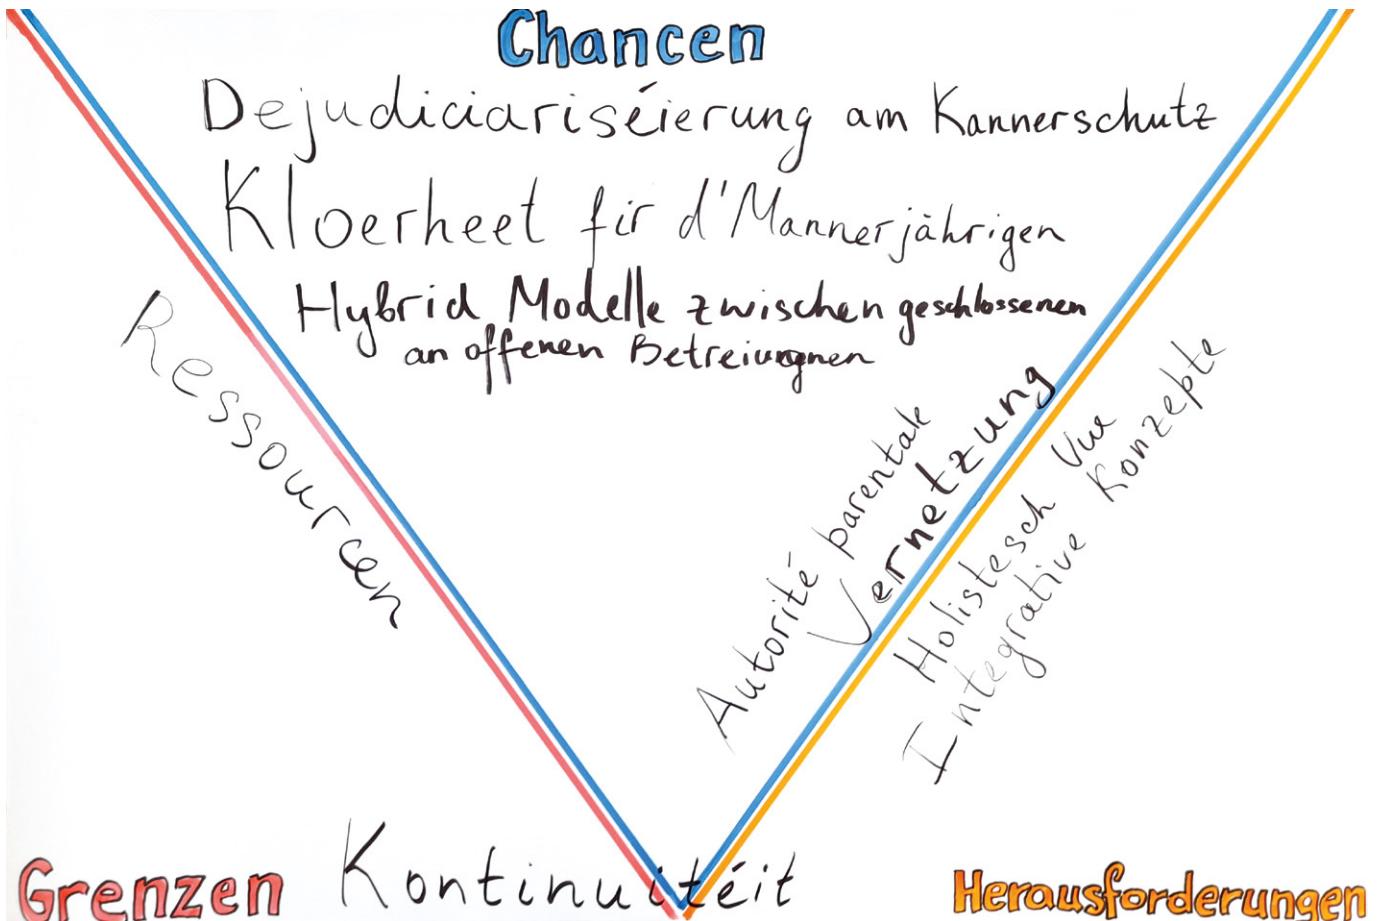 Chancen
Dejudiciariséierung am Kannerschutz
Kloerheet fir d'Mannerjährigen
Hybrid Modelle zwischen geschlossenen
an offenen Betreiungnen
Ressourcen
Autorité parentale
Vernetzung
Holistesch Vue
Integrative Konzepte
Kontinuitéit
Grenzen
Herausforderungen